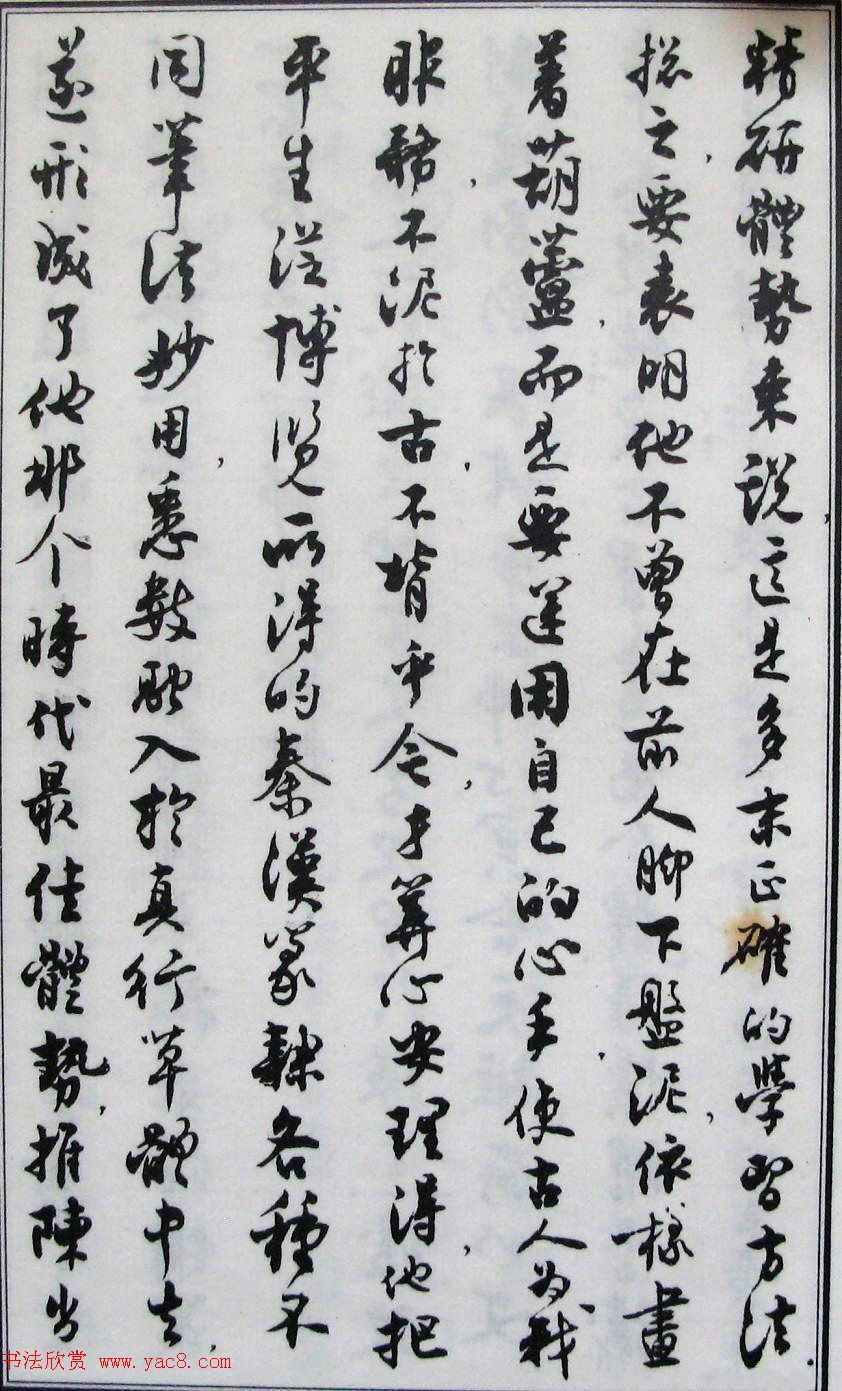 精研體勢来説，這是多末正確的學習方法．
揔之，要表明他不曾在前人脚下盤泥，依樣畫
着葫蘆，而是要運用自己的心手，使古人为我
服務，不泥於古，不背乎今，才算心安理得，他把
平生從博覽所得的秦漢篆隸各種不
同筆法妙用，悉數融入於真行草體中去，
遂形成了他那个時代最佳體勢，推陳出
书法欣赏 www.yac8.com